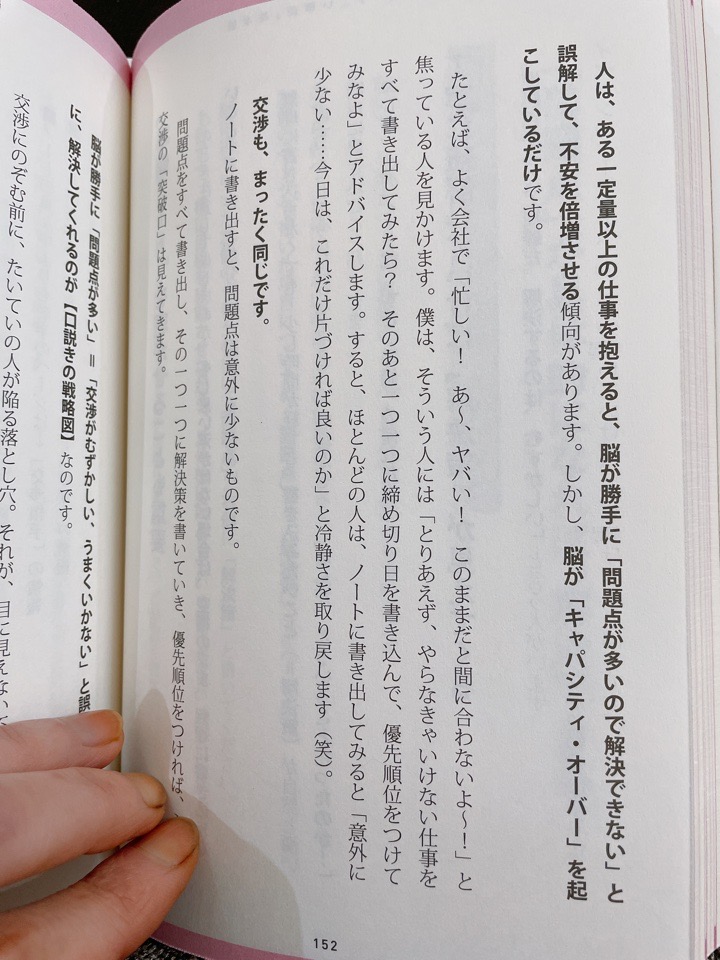 人は、ある一定量以上の仕事を抱えると、脳が勝手に「問題点が多いので解決できない」と
誤解して、不安を倍増させる傾向があります。しかし、脳が「キャパシティ・オーバー」を起
こしているだけです。
たとえば、よく会社で「忙しい！　あ〜、ヤバい！　このままだと間に合わないよ〜！」と
焦っている人を見かけます。僕は、そういう人には「とりあえず、やらなきゃいけない仕事を
すべて書き出してみたら？　そのあと一つ一つに締め切り日を書き込んで、優先順位をつけて
みなよ」とアドバイスします。すると、ほとんどの人は、ノートに書き出してみると「意外に
少ない……今日は、これだけ片づければ良いのか」と冷静さを取り戻します（笑）。
交渉も、まったく同じです。
ノートに書き出すと、問題点は意外に少ないものです。
問題点をすべて書き出し、その一つ一つに解決策を書いていき、優先順位をつければ、
交渉の「突破口」は見えてきます。
152
脳が勝手に「問題点が多い」＝「交渉がむずかしい、うまくいかない」と誤
に、解決してくれるのが【口説きの戦略図】なのです。
交渉にのぞむ前に、たいていの人が陥る落とし穴。それが、目に見えない